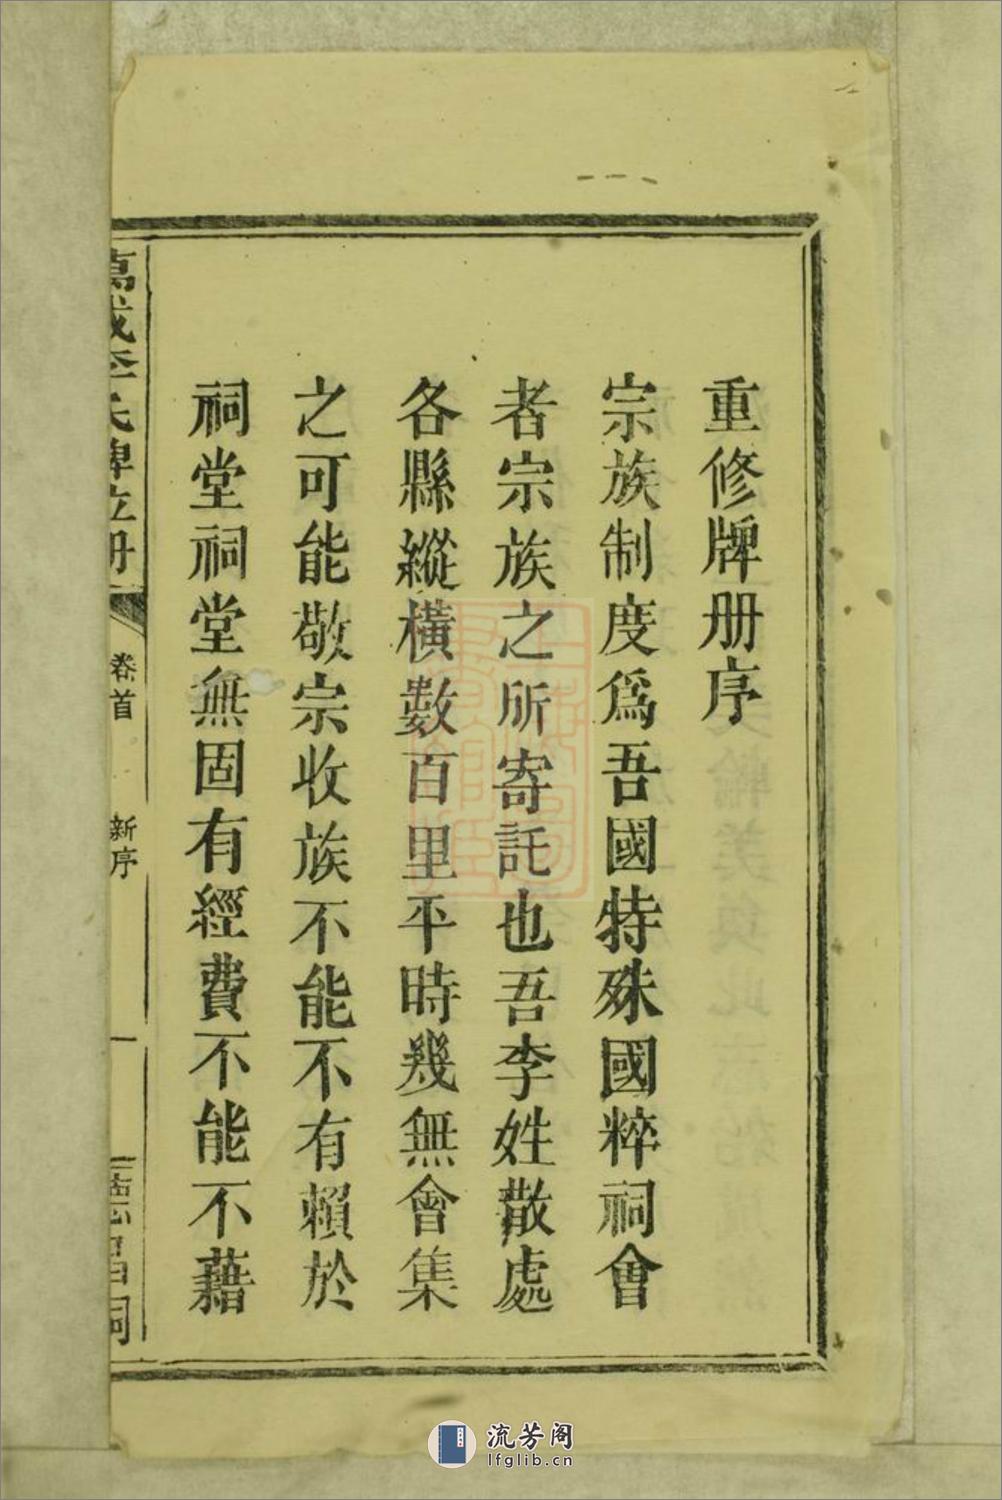 重修牌册序
宗族制度為吾國特殊國粹祠會
者宗族之所寄託也吾李姓散處
各縣縱橫數百里平時幾無會集
之可能敬宗收族不能不有賴於
祠堂祠堂無固有經費不能不藉
萬成李氏牌位册
卷首
新序
一
流芳阁
lfglib.cn